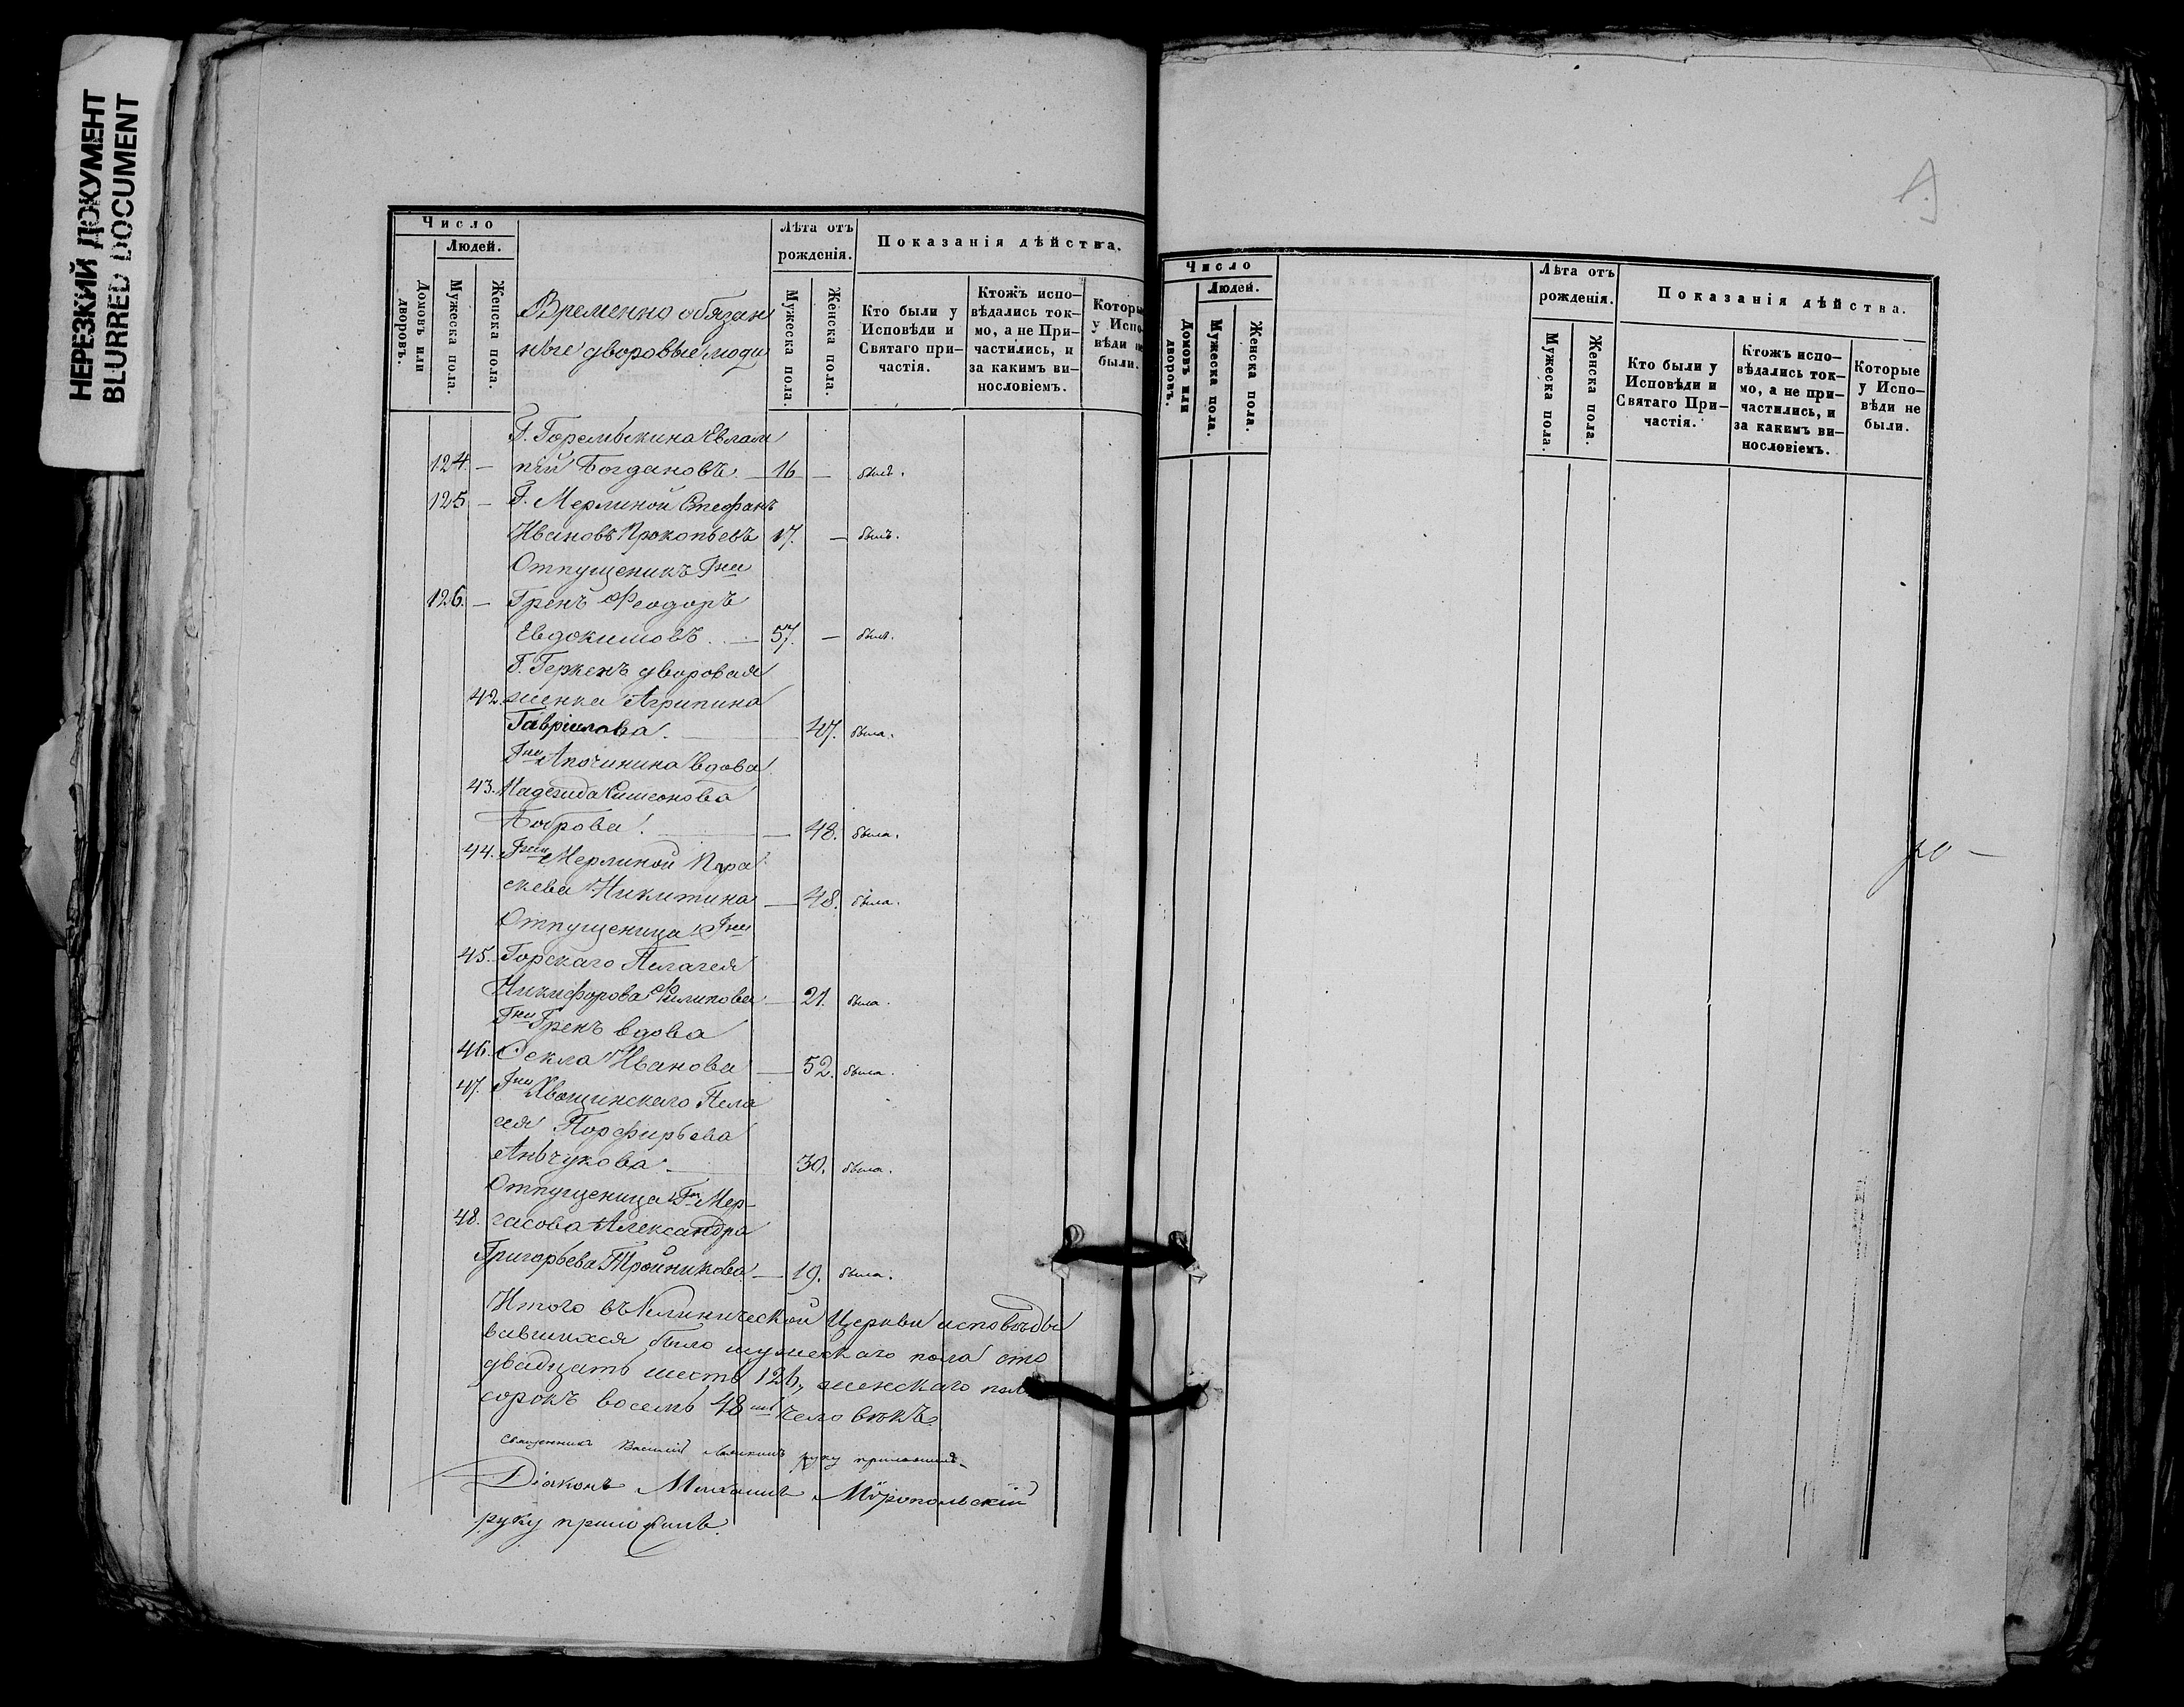 НЕРЕЗКИЙ ДОКУМЕНТ
BLURRED DOCUMENT
Число
Людей.
Домовъ или дворовъ.
Мужеска пола.
Женска пола.
Временно обязан
ные дворовые люди
Лѣта отъ рожденія.
Мужеска пола.
Женска пола.
Показанія дѣйства.
Кто были у Исповѣди и Святаго при-частія.
Ктожъ испо-вѣдались ток-мо, а не При-частились, и за какимъ ви-нословіемъ.
Которые у Испо-вѣди не были.
Г. Горемыкина Евлам
124. — пій Богдановъ. — 16 — былъ.
125. — Г. Мерлиной Стефанъ
Ивановъ Прокопьевъ 17. — былъ.
Отпущеникъ Гжи
126. — Гренъ Феодоръ
Евдокимовъ. — 57. — былъ.
Г. Геркенъ дворовая
42. женка Агрипина
Гавріилова. — 47. была.
Гжи Апочинина вдова
43. Надежда Симеонова
Боброва. — 48. была.
44. Гжи Мерлиной Пара
скева Никитина — 48. была.
Отпущеница Гна
45. Горскаго Пелагея
Никифорова Филипова — 21. была.
Гжи Гренъ вдова
46. Фекла Иванова — 52. была.
47. Гна Хвощинскаго Пела
гея Порфирьева
Анчукова — 30. была.
Отпущеница Гна Мер-
48. гасова Александра
Григорьева Тройникова — 19. была.
Итого въ Клинической Церкви исповѣды
вавшихся было мужескаго пола сто
двадцать шесть 126, женскаго пола
сорокъ восемь 48 человѣкъ.
Священникъ Василій руку приложилъ
Діаконъ Михаилъ Мѵропольскій
руку приложилъ.
Число
Людей.
Домовъ или дворовъ.
Мужеска пола.
Женска пола.
Лѣта отъ рожденія.
Мужеска пола.
Женска пола.
Показанія дѣйства.
Кто были у Исповѣди и Святаго При-частія.
Ктожъ испо-вѣдались ток-мо, а не при-частились, и за какимъ ви-нословіемъ.
Которые у Испо-вѣди не были.